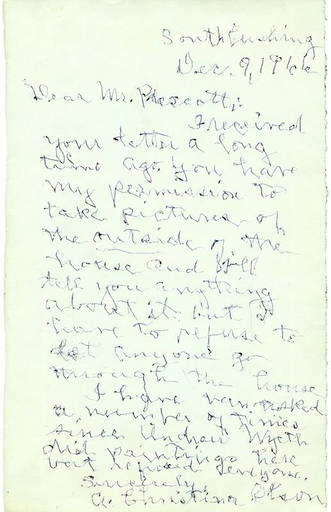 South Cushing
Dec. 9, 1966
Dear Mr. Prescott;
I received
your letter a long
time ago. You have
my permission to
take pictures of
the outside of the
house and I'll
tell you anything
about it. but I
have to refuse to
let anyone go
through the house
I have been asked
a number of times
since Andrew Wyeth
did paintings here
but refused everyone.
Sincerely,
A. Christina Olson